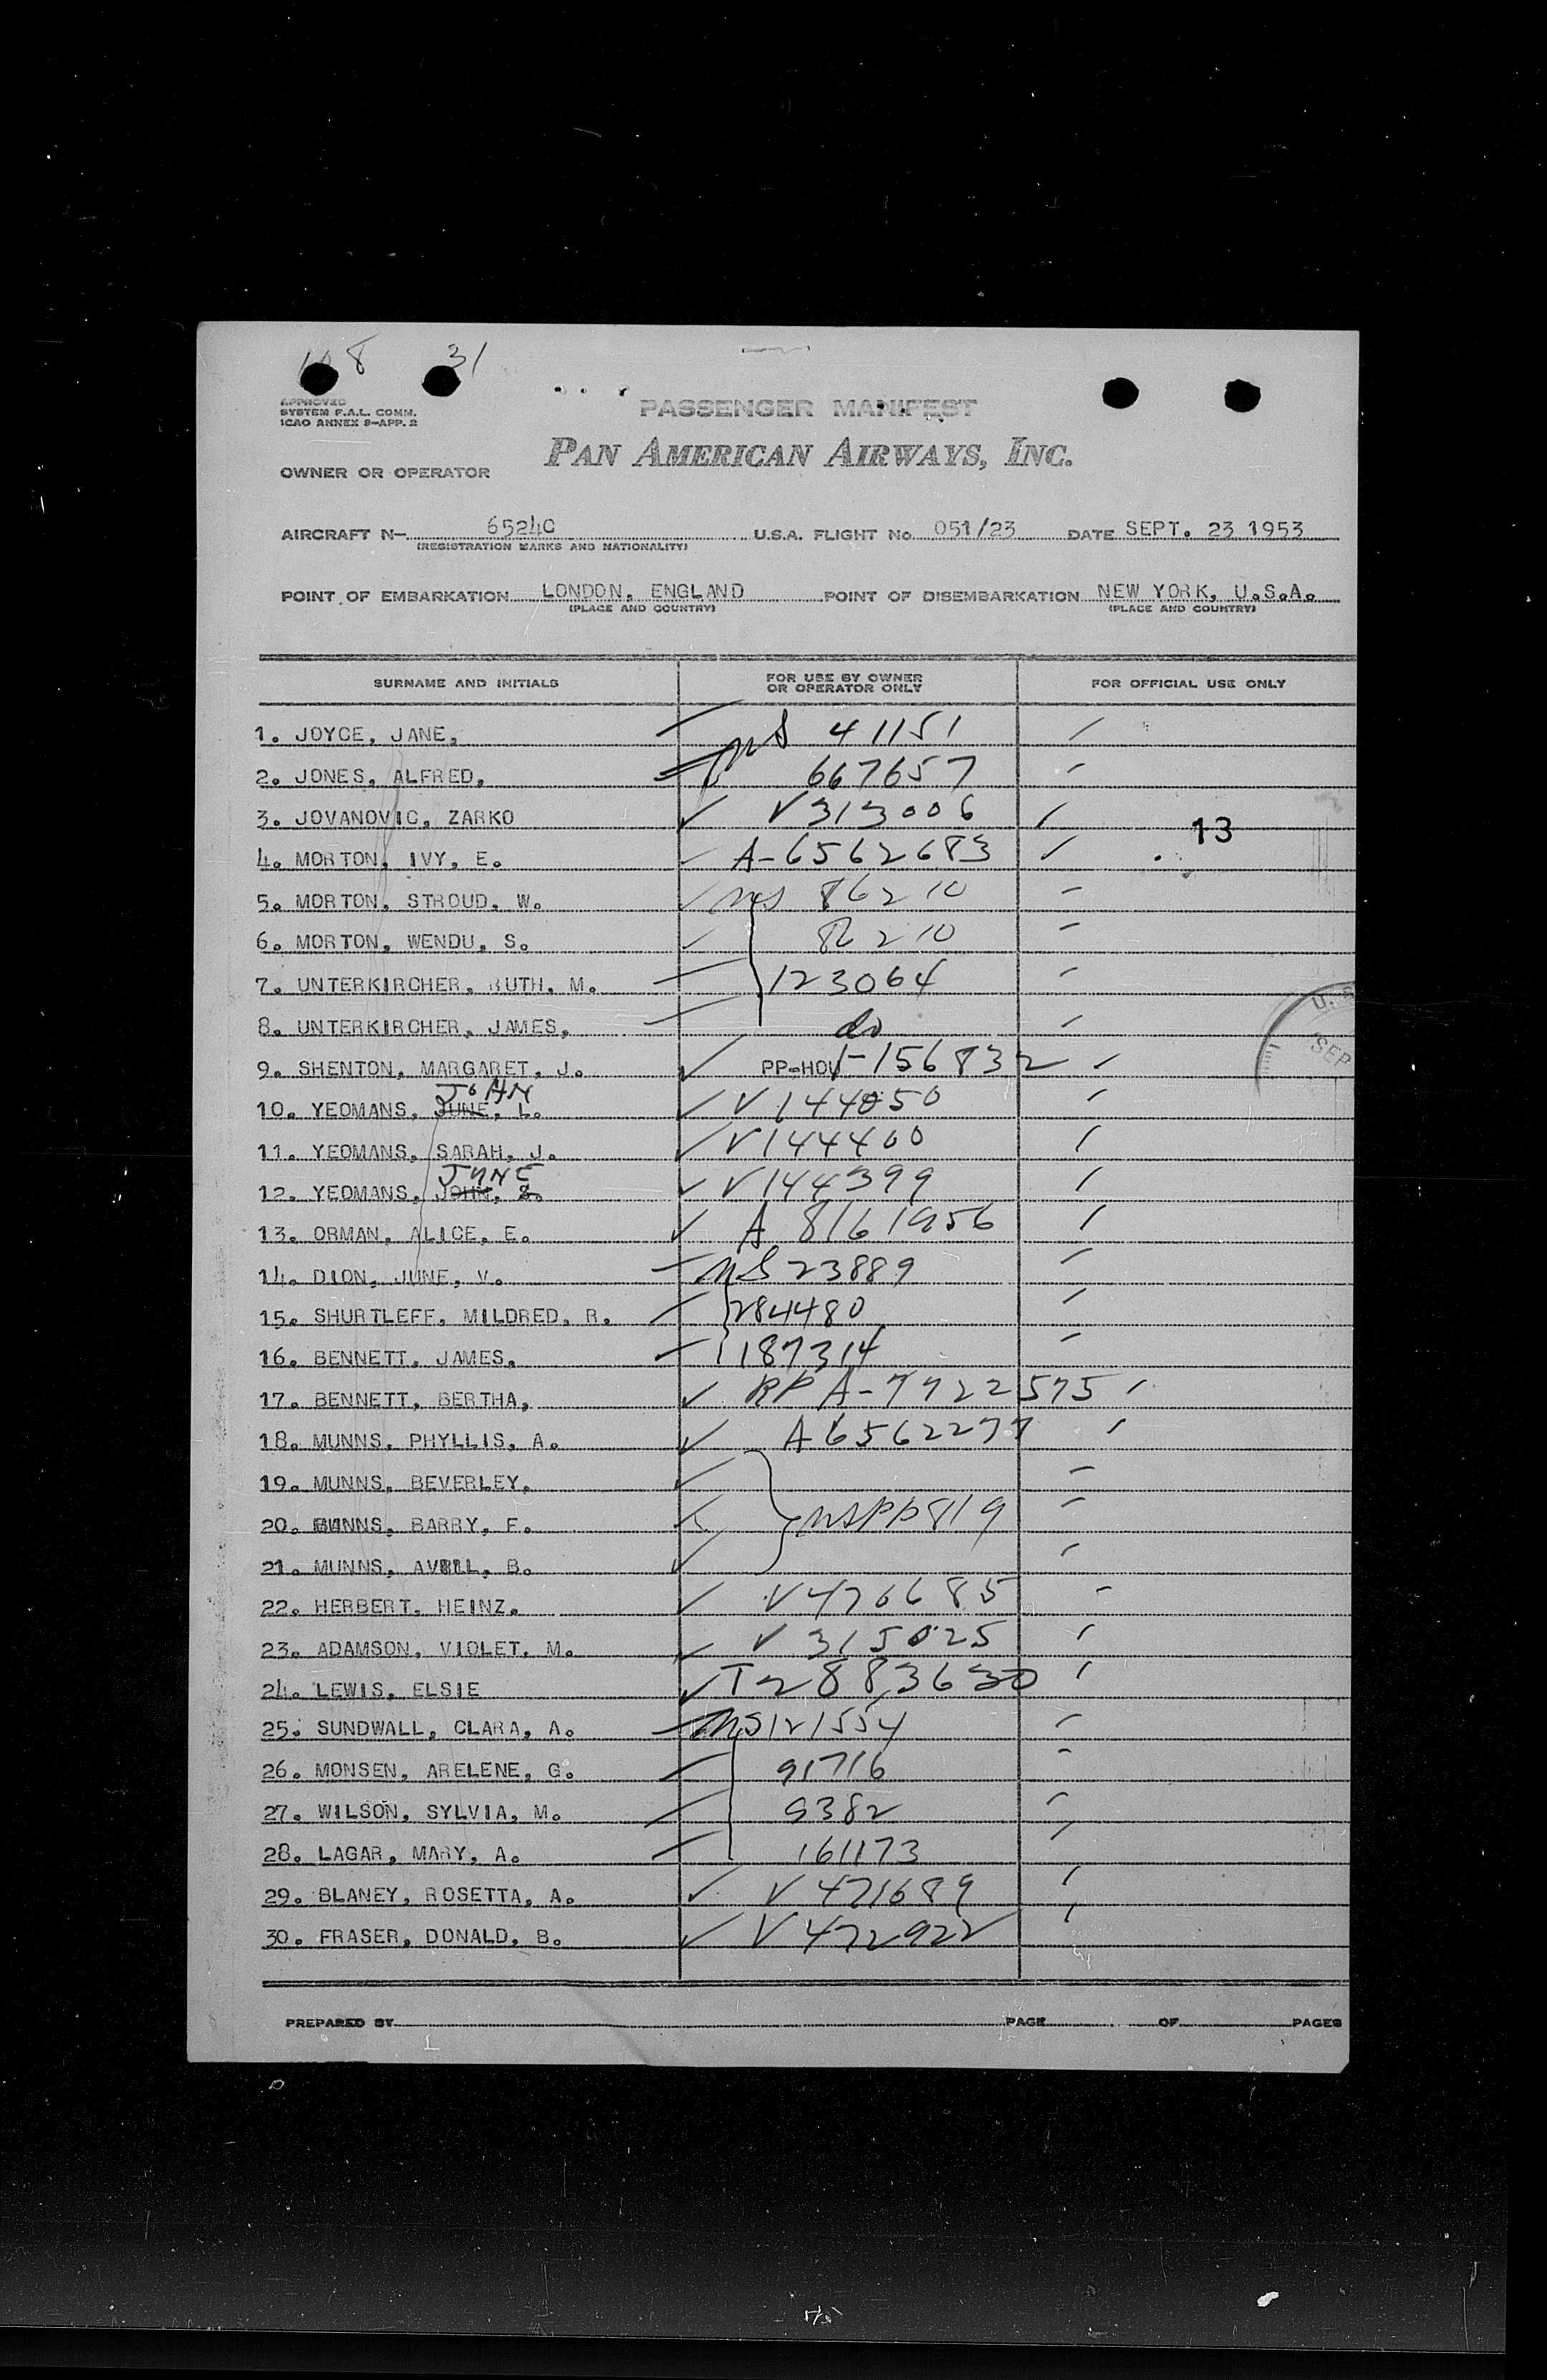 108 31
APPROVED
SYSTEM F.A.L. COMM.
ICAO ANNEX 9-APP. 2
PASSENGER MANIFEST
PAN AMERICAN AIRWAYS, INC.
OWNER OR OPERATOR
AIRCRAFT N- 6524C U.S.A. FLIGHT No. 051/23 DATE SEPT. 23 1953
(REGISTRATION MARKS AND NATIONALITY)
POINT OF EMBARKATION LONDON, ENGLAND POINT OF DISEMBARKATION NEW YORK, U.S.A.
(PLACE AND COUNTRY) (PLACE AND COUNTRY)
SURNAME AND INITIALS FOR USE BY OWNER OR OPERATOR ONLY FOR OFFICIAL USE ONLY
1. JOYCE, JANE, 41151
2. JONES, ALFRED, 667657
3. JOVANOVIC, ZARKO V313006
13
4. MORTON, IVY, E. A-6562683
5. MORTON, STROUD, W. 86210
6. MORTON, WENDU, S. 86210
7. UNTERKIRCHER, RUTH, M. 123064
8. UNTERKIRCHER, JAMES, do
U.S.
SEP
9. SHENTON, MARGARET, J. PP-HOV I-156832
JOHN
10. YEOMANS, JUNE, L. V 144050
11. YEOMANS, SARAH, J. V144400
JUNE
12. YEOMANS, JOHN, V144399
13. ORMAN, ALICE, E. A 8161956
14. DION, JUNE, V. 23889
15. SHURTLEFF, MILDRED, R. 284480
16. BENNETT, JAMES, 187314
17. BENNETT, BERTHA, RP A-7922575
18. MUNNS, PHYLLIS, A. A6562277
19. MUNNS, BEVERLEY,
20. MUNNS, BARRY, F. 819
21. MUNNS, AVRIL, B.
22. HERBERT, HEINZ. V476685
23. ADAMSON, VIOLET, M. V 315025
24. LEWIS, ELSIE T2883630
25. SUNDWALL, CLARA, A. 121554
26. MONSEN, ARELENE, G. 91716
27. WILSON, SYLVIA, M. 9382
28. LAGAR, MARY, A. 161173
29. BLANEY, ROSETTA, A. V 471689
30. FRASER, DONALD, B. V 472922
PREPARED BY PAGE OF PAGES